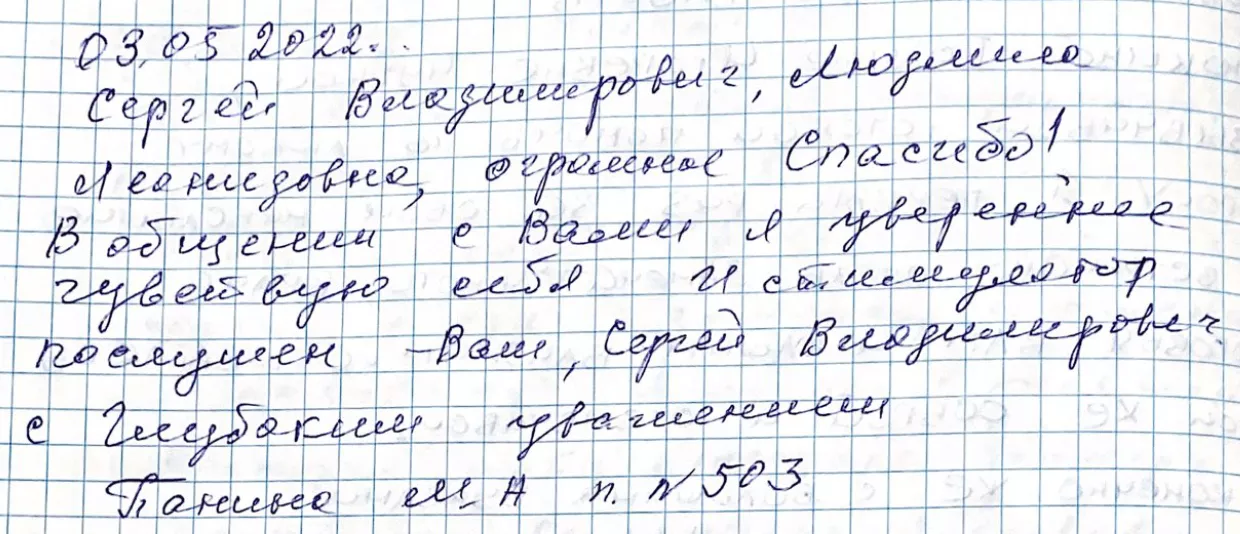 03.05 2022.
Сергей Владимирович, Людмила
Леонидовна, огромное Спасибо!
В общении с Вами я увереннее
чувствую себя и стимулятор
послушен - Вам, Сергей Владимирович.
с Глубоким уважением
Панина М, А п. № 503